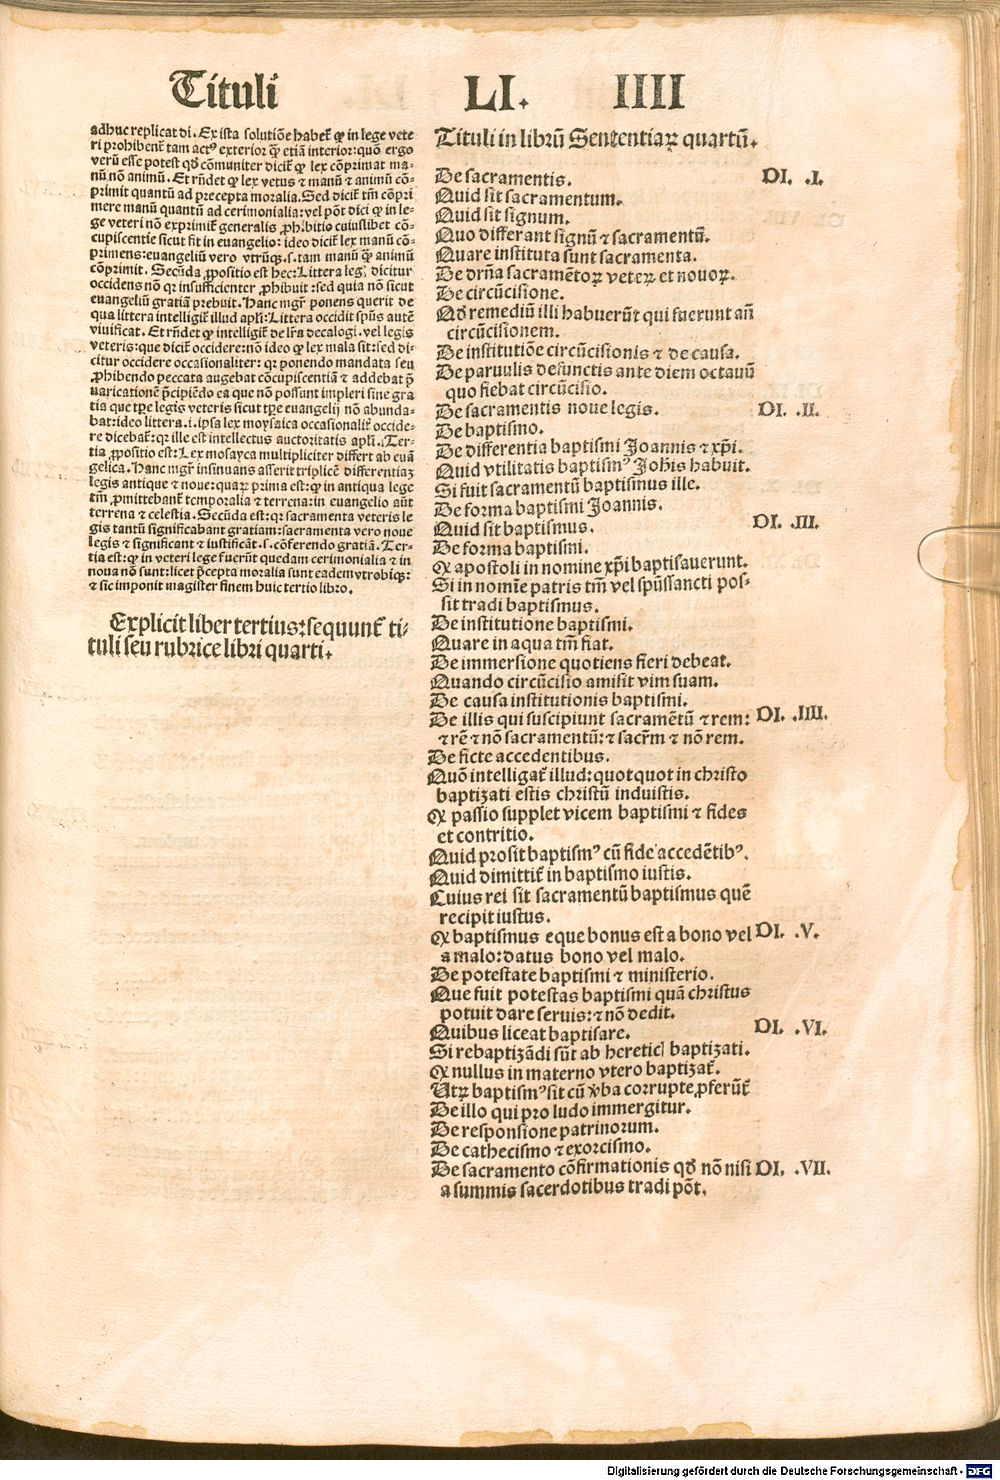 Tituli
LI. IIII
adhuc replicat di. Ex ista solutiõe habet᷑ ꝙ in lege vete
ri prohibent᷑ tam actꝰ exterior ꝙ̃ etiã interior: quõ ergo
verũ esse potest qď cõmuniter dicit᷑ ꝙ lex cõprimat ma-
nũ nõ animũ. Et rñdet ꝙ lex vetus ⁊ manũ ⁊ animũ cõ-
primit quantũ ad precepta moralia. Sed dicit᷑ tm̃ cõpri
mere manũ quantũ ad cerimonialia: vel põt dici ꝙ in le-
ge veteri nõ exprimit᷑ generalis ꝓhibitio cuiuslibet cõ-
cupiscentie sicut fit in euangelio: ideo dicit᷑ lex manũ cõ-
primens: euangeliũ vero vtrũqꝫ. s. tam manũ ꝙ̃ animũ
cõprimit. Secũda ꝓpositio est hec: Littera legꝭ dicitur
occidens nõ qꝛ insufficienter ꝓhibuit: sed quia nõ sicut
euangeliũ gratiã prebuit. Hanc mgr̃ ponens querit de
qua littera intelligit᷑ illud apľi: Littera occidit spũs autẽ
viuificat. Et rñdet ꝙ intelligit᷑ de lr̃a decalogi. vel legis
veteris: que dicit᷑ occidere: nõ ideo ꝙ lex mala sit: sed di-
citur occidere occasionaliter: qꝛ ponendo mandata seu
ꝓhibendo peccata augebat cõcupiscentiã ⁊ addebat p̃
uaricationẽ p̃cipiẽdo ea que nõ possunt impleri sine gra
tia que tp̃e legis veteris sicut tp̃e euangelij nõ abunda-
bat: ideo littera .i. ipsa lex moysaica occasionalit᷑ occide-
re dicebat᷑: qꝛ ille est intellectus auctoritatis apľi. Ter-
tia ꝓpositio est: Lex mosayca multipliciter differt ab euã
gelica. Hanc mgr̃ insinuans asserit triplicẽ differentiaꝫ
legis antique ⁊ noue: quaꝝ prima est: ꝙ in antiqua lege
tm̃ ꝓmittebant᷑ temporalia ⁊ terrena: in euangelio aũt
terrena ⁊ celestia. Secũda est: qꝛ sacramenta veteris le
gis tantũ significabant gratiam: sacramenta vero noue
legis ⁊ significant ⁊ iustificãt. s. cõferendo gratiã. Ter-
tia est: ꝙ in veteri lege fuerũt quedam cerimonialia ⁊ in
noua nõ sunt: licet p̃cepta moralia sunt eadem vtrobiqꝫ:
⁊ sic imponit magister finem huic tertio libro.
Explicit liber tertius: sequunt᷑ ti-
tuli seu rubrice libri quarti.
Tituli in librũ Sententiaꝝ quartũ.
De sacramentis. DI. .I.
Quid sit sacramentum.
Quid sit signum.
Quo differant signũ ⁊ sacramentũ.
Quare instituta sunt sacramenta.
De drñа sacramẽtoꝝ veteꝝ et nouoꝝ.
De circũcisione.
Qď remediũ illi habuerũt qui fuerunt añ
circũcisionem.
De institutiõe circũcisionis ⁊ de causa.
De paruulis defunctis ante diem octauũ
quo fiebat circũcisio.
De sacramentis noue legis. DI. .II.
De baptismo.
De differentia baptismi Joannis ⁊ xp̃i.
Quid vtilitatis baptismꝰ Joh̃is habuit.
Si fuit sacramentũ baptismus ille.
De forma baptismi Joannis.
Quid sit baptismus. DI. .III.
De forma baptismi.
Ꝙ apostoli in nomine xp̃i baptisauerunt.
Si in nomĩe patris tm̃ vel spũssancti pos-
sit tradi baptismus.
De institutione baptismi.
Quare in aqua tm̃ fiat.
De immersione quotiens fieri debeat.
Quando circũcisio amisit vim suam.
De causa institutionis baptismi.
De illis qui suscipiunt sacramẽtũ ⁊ rem: DI. .IIII.
⁊ rẽ ⁊ nõ sacramentũ: ⁊ sacr̃m ⁊ nõ rem.
De ficte accedentibus.
Quõ intelligat᷑ illud: quotquot in christo
baptizati estis christũ induistis.
Ꝙ passio supplet vicem baptismi ⁊ fides
et contritio.
Quid prosit baptismꝰ cũ fide accedẽtibꝰ.
Quid dimittit᷑ in baptismo iustis.
Cuius rei sit sacramentũ baptismus quẽ
recipit iustus.
Ꝙ baptismus eque bonus est a bono vel DI. .V.
a malo: datus bono vel malo.
De potestate baptismi ⁊ ministerio.
Que fuit potestas baptismi quã christus
potuit dare seruis: ⁊ nõ dedit.
Quibus liceat baptisare. DI. .VI.
Si rebaptizãdi sũt ab hereticꝭ baptizati.
Ꝙ nullus in materno vtero baptizat᷑.
Utꝝ baptismꝰ sit cũ v̓ba corrupte ꝓferũt᷑
De illo qui pro ludo immergitur.
De responsione patrinorum.
De cathecismo ⁊ exorcismo.
De sacramento cõfirmationis qď nõ nisi DI. .VII.
a summis sacerdotibus tradi põt.
Digitalisierung gefördert durch die Deutsche Forschungsgemeinschaft - DFG